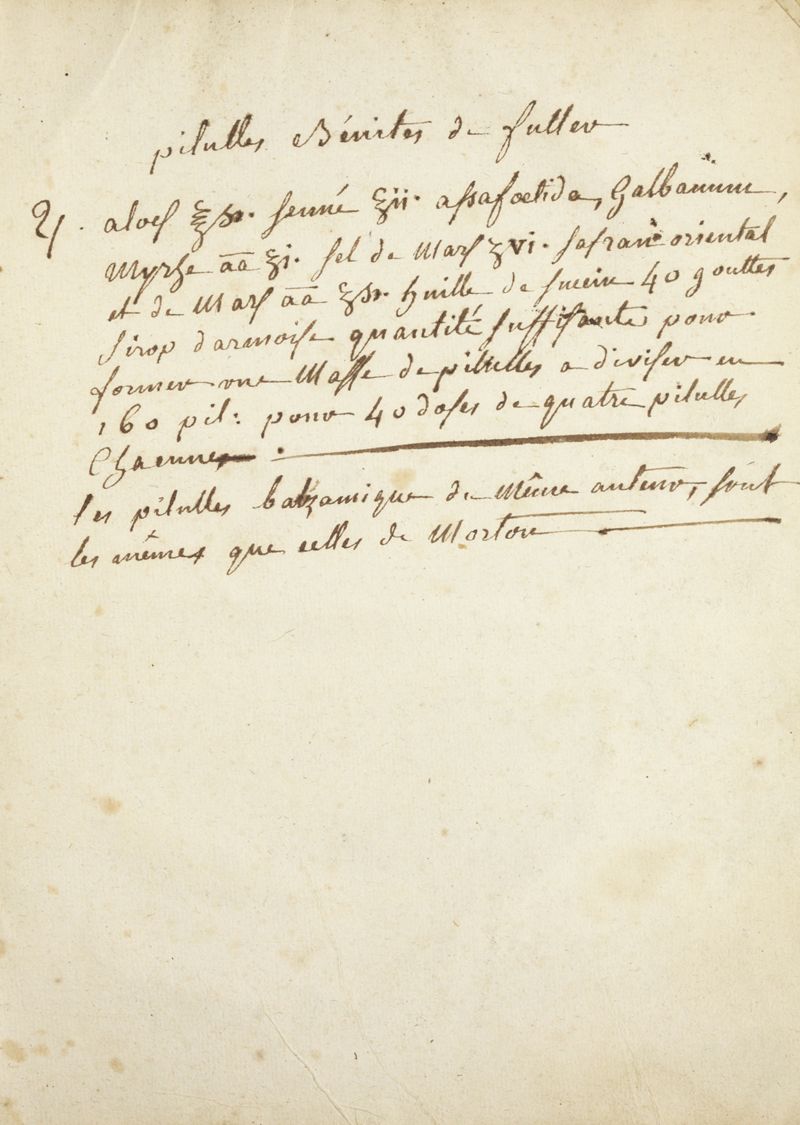 pilulles Bénites de fuller
♃. aloes ℥ß. senné ʒii. assafoetida, Galbanum,
Myrhe āā ʒi. sel de Mars ʒvi. safran oriental
et de Mars āā ʒß. huille de sucin 40 gouttes
sirop d'armoise quantité suffisante pour
former une Masse de pilulles a diviser en
160 pil: pour 40 doses de quatre pilulles
Chacunes.
les pilulles balzamique de Même auteur, sont
les mêmes que celles de Morton